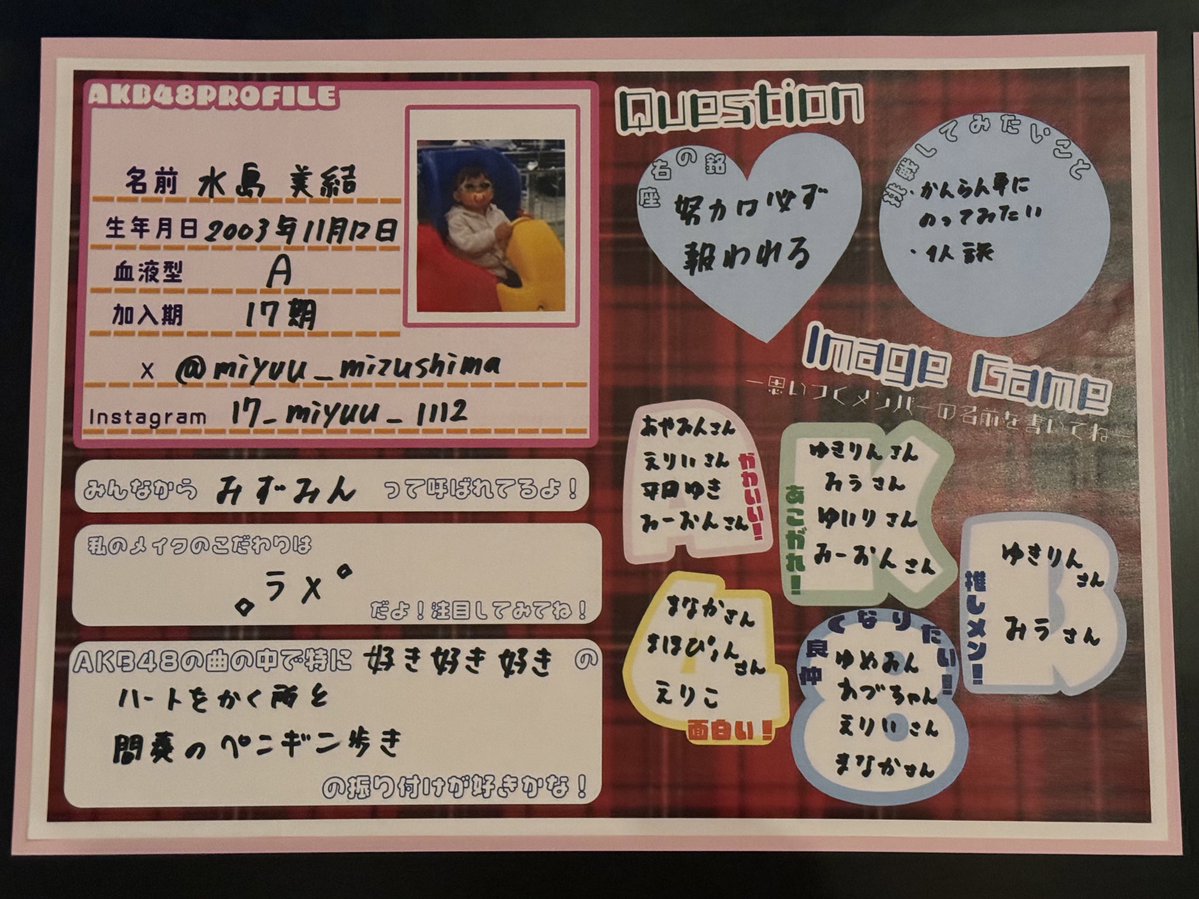 AKB48PROFILE
名前 水島 美結
生年月日 2003年11月12日
血液型 A
加入期 17期
X @miyuu_mizushima
Instagram 17_miyuu_1112
みんなから みずみん って呼ばれてるよ！
私のメイクのこだわりは
ラメ
だよ！注目してみてね！
AKB48の曲の中で特に 好き好き好き の
ハートをかく所と
間奏のペンギン歩き
の振り付けが好きかな！
Question
座右の銘
努力は必ず
報われる
挑戦してみたいこと
・かんらん車に
のってみたい
・1人旅
Image Game
－思いつくメンバーの名前を書いてね－
A
あやみんさん
えりいさん
平田ゆき
みーおんさん
かわいい！
K
ゆきりんさん
みうさん
ゆいりさん
みーおんさん
あこがれ！
B
ゆきりん
さん
みうさん
推しメン！
4
まなかさん
まほぴょん
さん
えりこ
面白い！
8
仲良くなりたい！
ゆめみん
あづちゃん
えりいさん
まなかさん